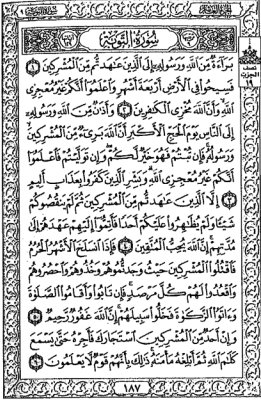 سورة التوبة
براءة من الله ورسوله إلى الذين عهدتم من المشركين ١
فسيحوا في الأرض أربعة أشهر واعلموا أنكم غير معجزي
الله وأن الله مخزي الكفرين ٢ وأذن من الله ورسوله
إلى الناس يوم الحج الأكبر أن الله بريء من المشركين
ورسوله فإن تبتم فهو خير لكم وإن توليتم فاعلموا
أنكم غير معجزي الله وبشر الذين كفروا بعذاب أليم
٣ إلا الذين عهدتم من المشركين ثم لم ينقصوكم
شيئا ولم يظهروا عليكم أحدا فأتموا إليهم عهدهم إلى
مدتهم إن الله يحب المتقين ٤ فإذا انسلخ الأشهر الحرم
فاقتلوا المشركين حيث وجدتموهم وخذوهم واحصروهم
واقعدوا لهم كل مرصد فإن تابوا وأقاموا الصلوة
وءاتوا الزكوة فخلوا سبيلهم إن الله غفور رحيم ٥
وإن أحد من المشركين استجارك فأجره حتى يسمع
كلم الله ثم أبلغه مأمنه ذلك بأنهم قوم لا يعلمون ٦
١٨٧